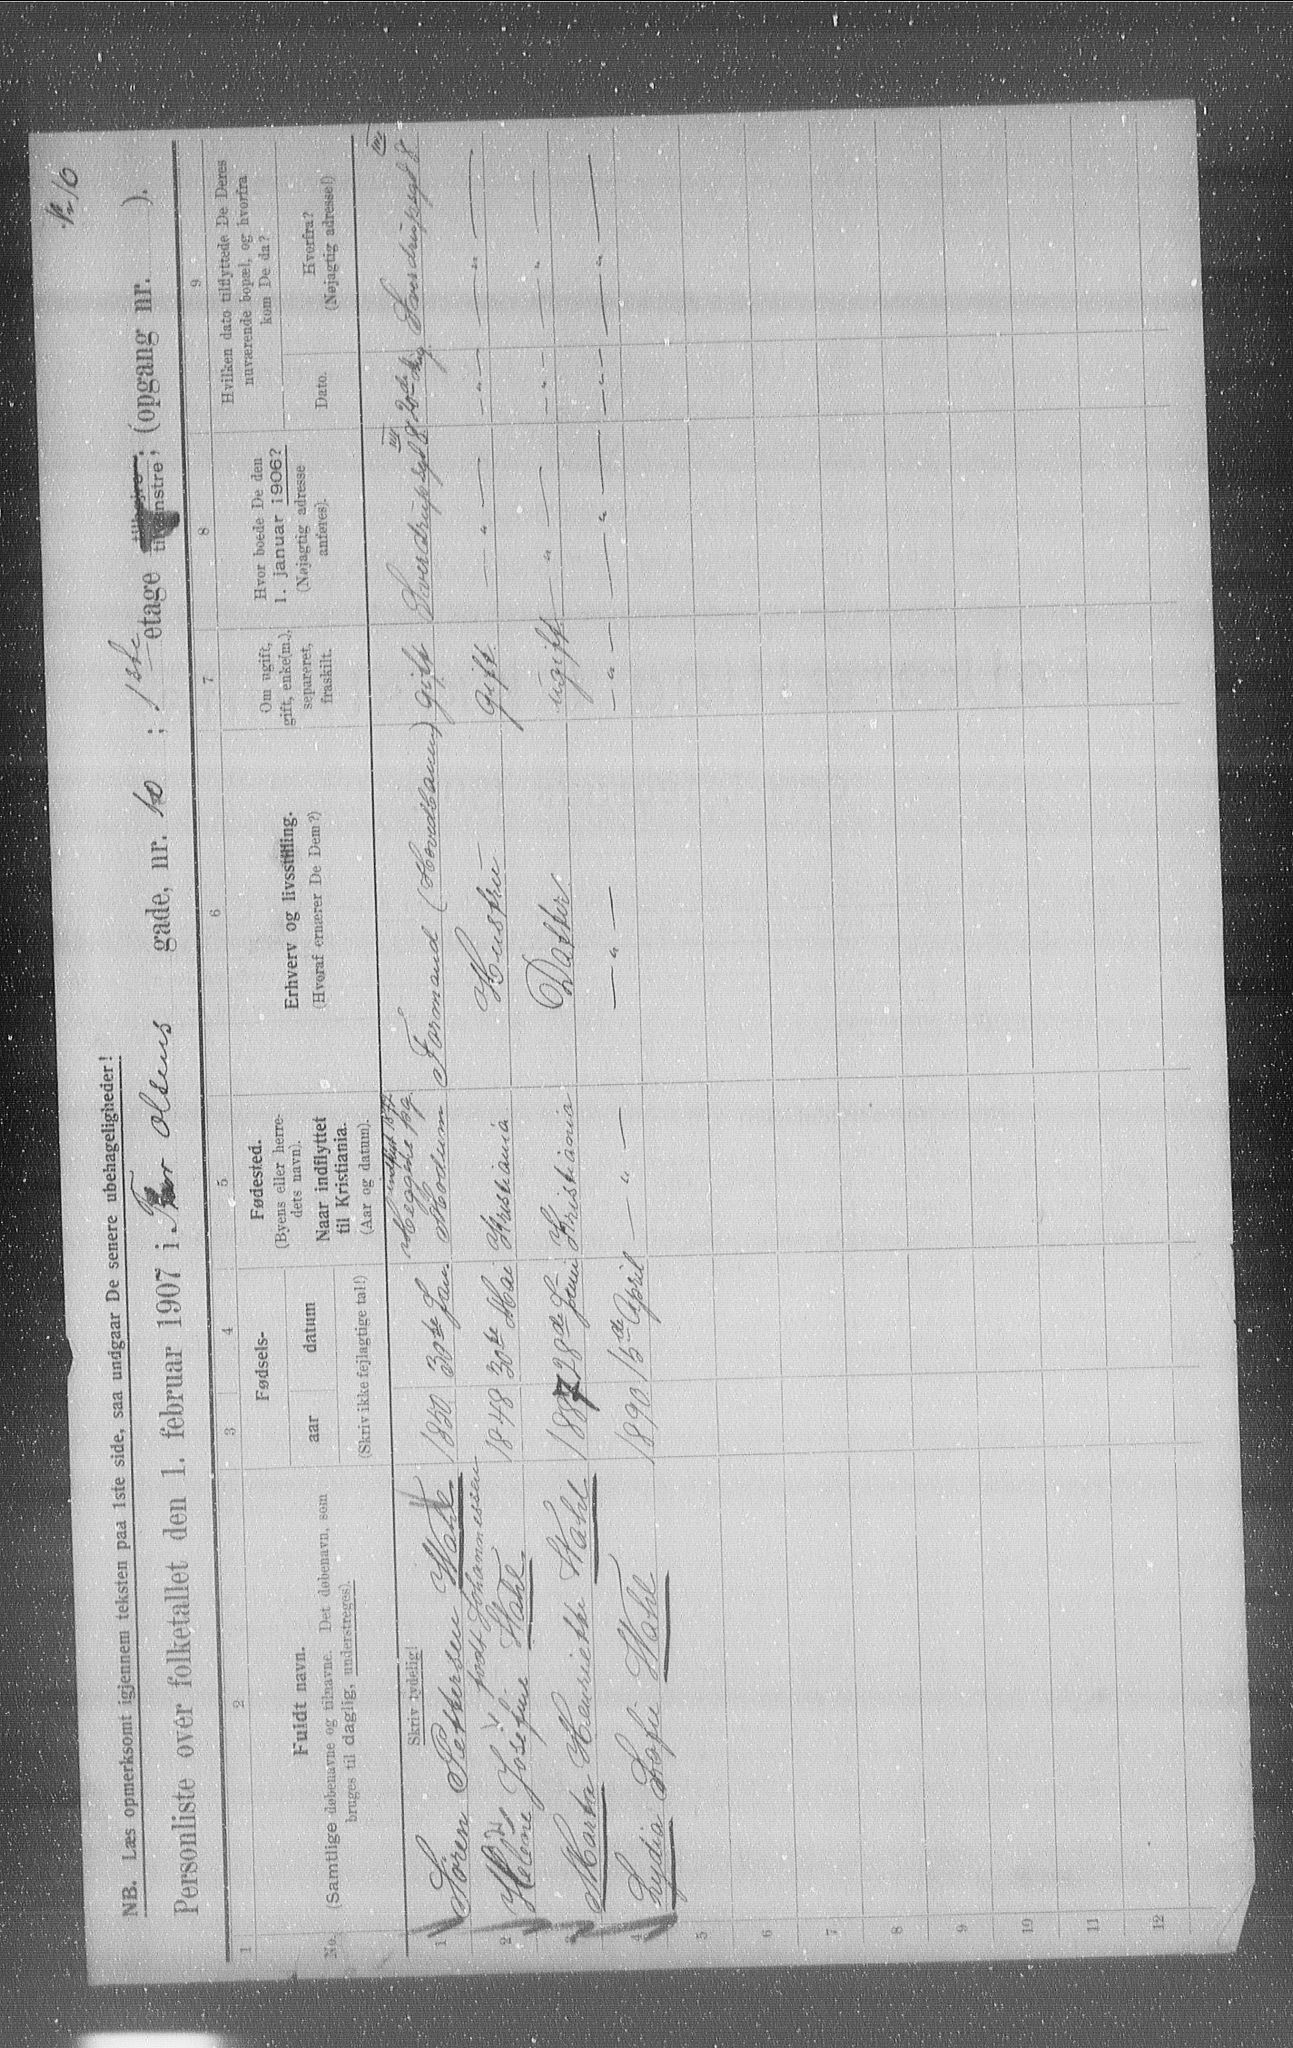 NB. Læs opmerksomt igjennem teksten paa 1ste side, saa undgaar De senere ubehageligheder!
10
Personliste over folketallet den 1. februar 1907 i Tor Olsens gade, nr. 10 ; 1ste etage tilhøjre, tilvenstre, (opgang nr. ).
1 2 3 4 5 6 7 8 9
No.
Fuldt navn.
(Samtlige døbenavne og tilnavne. Det døbenavn, som
bruges til daglig, understreges).
Skriv tydelig!
Fødsels-
aar datum
(Skriv ikke fejlagtige tal!)
Fødested.
(Byens eller herre-
dets navn).
Naar indflyttet
til Kristiania.
(Aar og datum).
Erhverv og livsstilling.
(Hvoraf ernærer De Dem?)
Om ugift,
gift, enke(m.),
separeret,
fraskilt.
Hvor boede De den
1. januar 1906?
(Nøjagtig adresse
anføres).
Hvilken dato tilflyttede De Deres
nuværende bopæl, og hvorfra
kom De da?
Dato.
Hvorfra?
(Nøjagtig adresse!)
1 Sören Pettersen Wahl. 1850 30te Jan. Modum Formand (Hovedbanen) gift Sverdrupsgd 8 III 20de Sverdrupsgd 8 III
født Johannessen
2 Helene Josefine Wahl. 1848 30te Mai Kristiania Hustru gift. — " — — " — — " —
3 Marta Henriette Wahl 1887 28de Juni Kristiania Datter ugift — " — — " — — " —
4 Lydia Sofie Wahl 1890 15de April — " — — " — — " — — " — — " — — " —
5
6
7
8
9
10
11
12